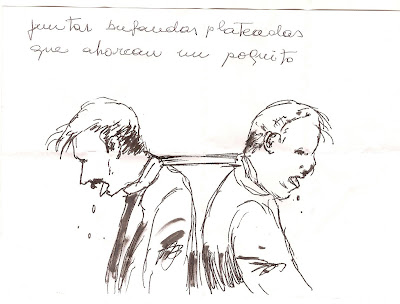 juntar bufandas plateadas
que ahorcan un poquito